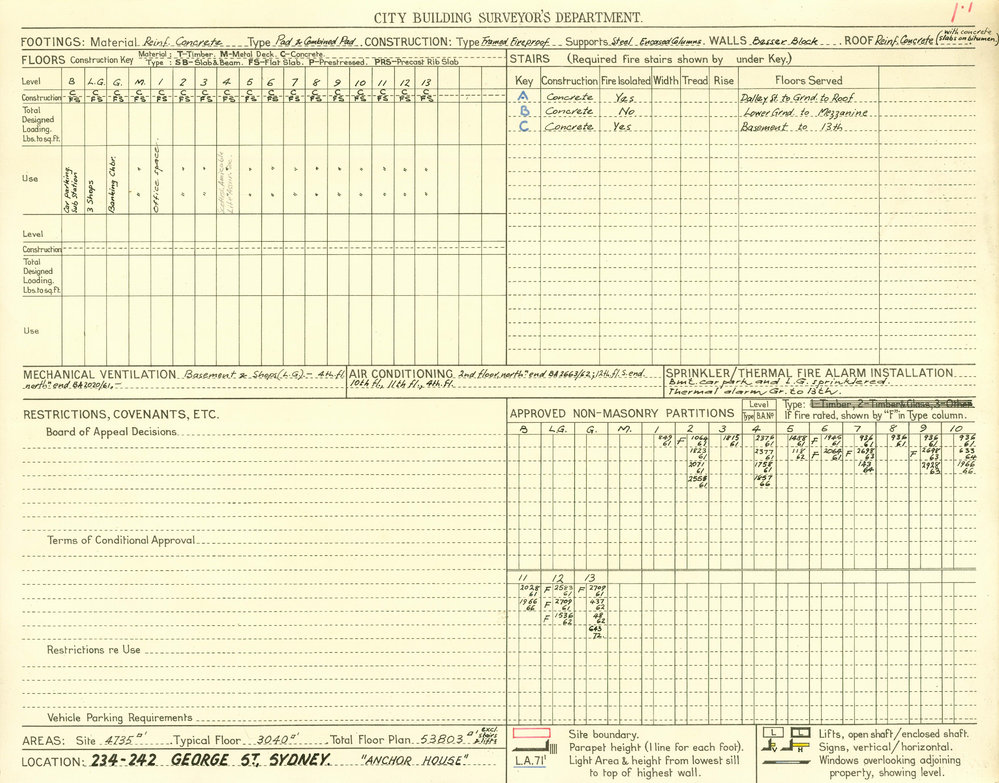 1.1
CITY BUILDING SURVEYOR'S DEPARTMENT.
FOOTINGS: Material Reinf. Concrete Type Pad & Combined Pad CONSTRUCTION: Type Framed Fireproof Supports Steel Encased Columns WALLS Besser Block ROOF Reinf. Concrete (with concrete slabs on bitumen)
FLOORS Construction Key Material: T-Timber. M-Metal Deck. C-Concrete.
Type: SB-Slab & Beam. FS-Flat Slab. P-Prestressed. PRS-Precast Rib Slab
Level B L.G. G. M. 1 2 3 4 5 6 7 8 9 10 11 12 13
Construction C C C C C C C C C C C C C C C C C
FS FS FS FS FS FS FS FS FS FS FS FS FS FS FS FS FS
Total Designed Loading. Lbs. to sq. ft.
Use
Car parking. Sub Station
3 Shops
Banking Chbr.
" "
Office space.
" " " " " " " " " " " " " " " " " " " " " "
Level
Construction
Total Designed Loading. Lbs. to sq. ft.
Use
STAIRS (Required fire stairs shown by under Key.)
Key Construction Fire Isolated Width Tread Rise Floors Served
A Concrete Yes Dalley St. to Grnd. to Roof
B Concrete No Lower Grnd. to Mezzanine
C Concrete Yes Basement to 13th
MECHANICAL VENTILATION Basement & Shops (L.G.) - 4th fl.
north end BA2020/61,-
AIR CONDITIONING 2nd floor, north end BA2663/62; 13th fl. S. end
10th fl., 11th fl., 4th fl.
SPRINKLER/THERMAL FIRE ALARM INSTALLATION
Bmt. carpark and L.G. sprinklered.
Thermal alarm Gr. to 13th.
RESTRICTIONS, COVENANTS, ETC.
Board of Appeal Decisions
Terms of Conditional Approval
Restrictions re Use
Vehicle Parking Requirements
APPROVED NON-MASONRY PARTITIONS Level Type B.A. No Type: 1-Timber, 2-Timber & Glass, 3-Other
If fire rated, shown by "F" in Type column.
B L.G. G. M. 1 2 3 4 5 6 7 8 9 10
849/61 F 1064/61 1815/61 2376/61 1488/61 F 1945/61 936/61 936/61 936/61 936/61
1823/61 2377/61 118/62 F 2064/61 F 2698/63 F 2698/63 633/64
2071/61 1758/61 143/64 2928/63 1966/66
2558/61 1857/66
11 12 13
2028/61 F 2583/61 F 2709/61
1966/66 F 2709/61 437/62
F 1536/62 48/62
643/72.
AREAS: Site 4735 □' Typical Floor 3040 □' Total Floor Plan 53803 □' excl. stairs & lifts
LOCATION: 234-242 GEORGE ST, SYDNEY. "ANCHOR HOUSE"
Site boundary.
Parapet height (1 line for each foot).
L.A. 71' Light Area & height from lowest sill
to top of highest wall.
L L Lifts, open shaft/enclosed shaft.
V H Signs, vertical/horizontal.
Windows overlooking adjoining
property, showing level.